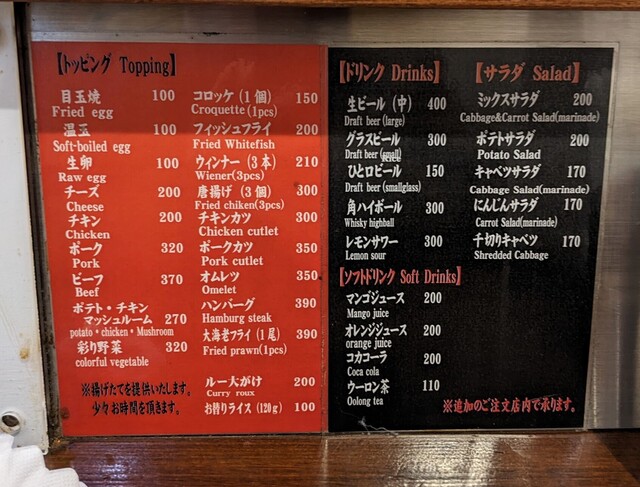 【トッピング Topping】
目玉焼 100
Fried egg
温玉 100
Soft-boiled egg
生卵 100
Raw egg
チーズ 200
Cheese
チキン 200
Chicken
ポーク 320
Pork
ビーフ 370
Beef
ポテト・チキン
マッシュルーム 270
potato・chicken・Mushroom
彩り野菜 320
colorful vegetable
※揚げたてを提供いたします。
少々お時間を頂きます。
コロッケ(1個) 150
Croquette(1pcs)
フィッシュフライ 200
Fried Whitefish
ウィンナー(3本) 210
Wiener(3pcs)
唐揚げ(3個) 300
Fried chiken(3pcs)
チキンカツ 300
Chicken cutlet
ポークカツ 350
Pork cutlet
オムレツ 350
Omelet
ハンバーグ 390
Hamburg steak
大海老フライ(1尾) 390
Fried prawn(1pcs)
ルー大がけ 200
Curry roux
お替りライス(120g) 100
【ドリンク Drinks】
生ビール(中) 400
Draft beer (large)
グラスビール 300
Draft beer (small)
ひと口ビール 150
Draft beer (smallglass)
角ハイボール 300
Whisky highball
レモンサワー 300
Lemon sour
【ソフトドリンク Soft Drinks】
マンゴジュース 200
Mango juice
オレンジジュース 200
orange juice
コカコーラ 200
Coca cola
ウーロン茶 110
Oolong tea
【サラダ Salad】
ミックスサラダ 200
Cabbage&Carrot Salad(marinade)
ポテトサラダ 200
Potato Salad
キャベツサラダ 170
Cabbage Salad(marinade)
にんじんサラダ 170
Carrot Salad(marinade)
千切りキャベツ 170
Shredded Cabbage
※追加のご注文店内で承ります。